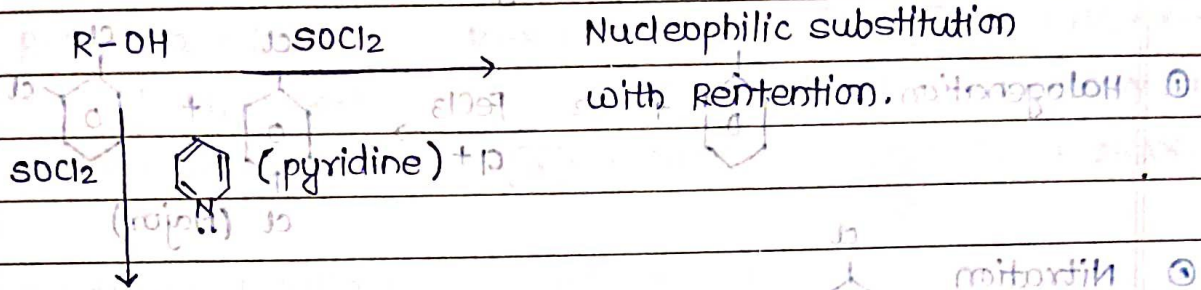 R-OH SOCl2 Nucleophilic substitution
with Rentention.
SOCl2 (pyridine)
N